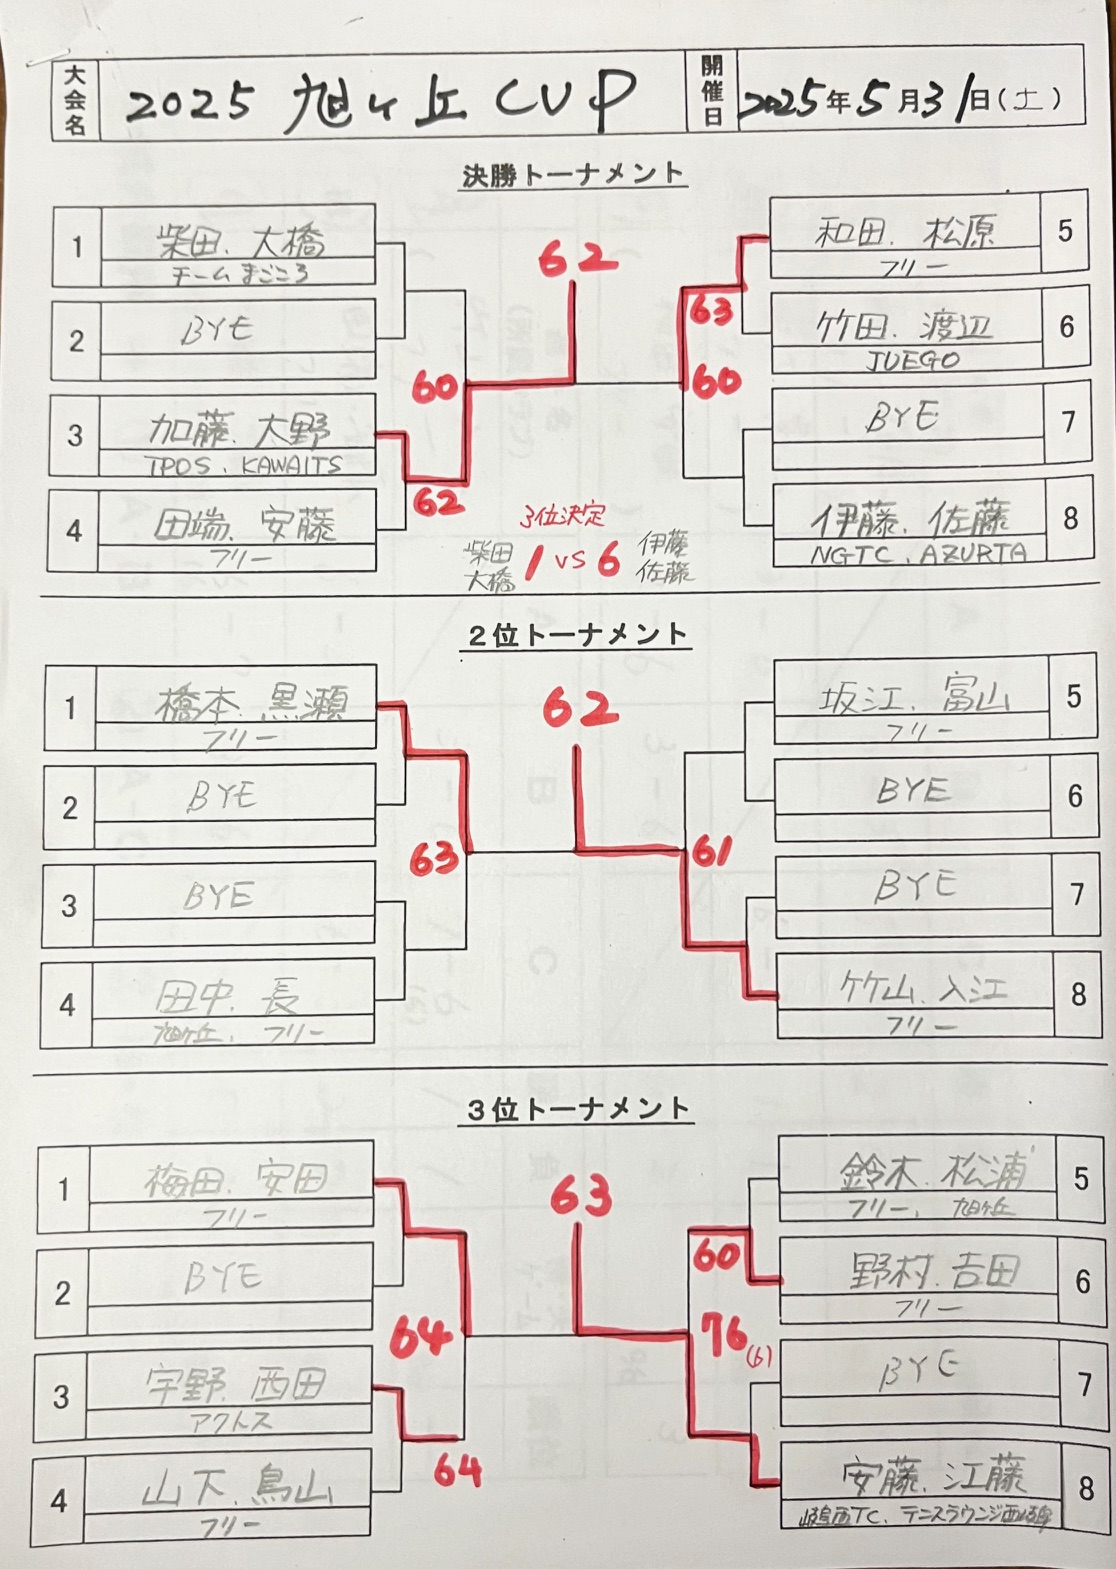 大会名
2025 旭ヶ丘 CUP
開催日
2025年5月31日(土)
決勝トーナメント
1
柴田、大橋
チームまごころ
2
BYE
3
加藤、大野
TPOS、KAWAITS
4
田端、安藤
フリー
60
62
62
63
60
5
和田、松原
フリー
6
竹田、渡辺
JUEGO
7
BYE
8
伊藤、佐藤
NGTC、AZURTA
3位決定
柴田
大橋
1 vs 6
伊藤
佐藤
2位トーナメント
1
橋本、黒瀬
フリー
2
BYE
3
BYE
4
田中、長
旭ヶ丘、フリー
63
62
61
5
坂江、富山
フリー
6
BYE
7
BYE
8
竹山、入江
フリー
3位トーナメント
1
梅田、安田
フリー
2
BYE
3
宇野、西田
アクトス
4
山下、鳥山
フリー
64
64
63
60
76(6)
5
鈴木、松浦
フリー、旭ヶ丘
6
野村、吉田
フリー
7
BYE
8
安藤、江藤
テニスラウンジ西岐阜